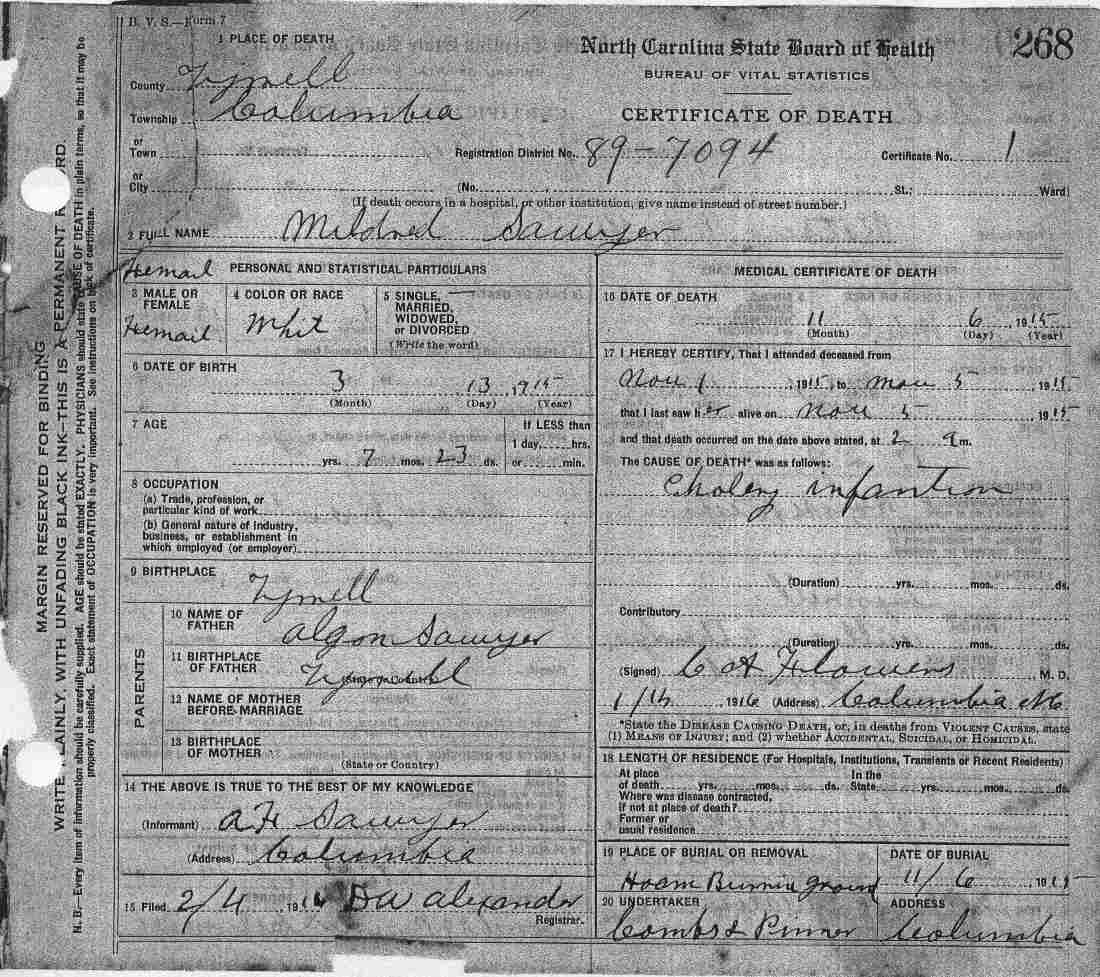 B. V. S.—Form 7
268
1 PLACE OF DEATH
North Carolina State Board of Health
BUREAU OF VITAL STATISTICS
CERTIFICATE OF DEATH
County Tyrrell
Township Columbia
or
Town
Registration District No. 89-7094
Certificate No. 1
or
City (No. , St.; Ward)
(If death occurs in a hospital, or other institution, give name instead of street number.)
2 FULL NAME Mildred Sawyer
Femail PERSONAL AND STATISTICAL PARTICULARS
3 MALE OR FEMALE
Femail
4 COLOR OR RACE
Whit
5 SINGLE, MARRIED, WIDOWED, or DIVORCED
(Write the word)
6 DATE OF BIRTH
3 13 1915
(Month) (Day) (Year)
7 AGE
If LESS than
1 day, hrs.
or min.
yrs. 7 mos. 23 ds.
8 OCCUPATION
(a) Trade, profession, or
particular kind of work
(b) General nature of Industry,
business, or establishment in
which employed (or employer)
9 BIRTHPLACE
Tyrrell
PARENTS
10 NAME OF FATHER
Sawyer
11 BIRTHPLACE OF FATHER
Tyrrell
12 NAME OF MOTHER BEFORE MARRIAGE
13 BIRTHPLACE OF MOTHER
(State or Country)
14 THE ABOVE IS TRUE TO THE BEST OF MY KNOWLEDGE
(Informant) Sawyer
(Address) Columbia
15 Filed 2/4 1916 Alexander
Registrar.
MEDICAL CERTIFICATE OF DEATH
16 DATE OF DEATH
11 6 1915
(Month) (Day) (Year)
17 I HEREBY CERTIFY, That I attended deceased from
Nov 1 1915 to Nov 5 1915
that I last saw her alive on Nov 5 1915
and that death occurred on the date above stated, at 2 a m.
The CAUSE OF DEATH* was as follows:
(Duration) yrs. mos. ds.
Contributory
(Duration) yrs. mos. ds.
(Signed) C A Flowers M. D.
1916 (Address) Columbia NC
*State the DISEASE CAUSING DEATH, or, in deaths from VIOLENT CAUSES, state
(1) MEANS OF INJURY; and (2) whether ACCIDENTAL, SUICIDAL, or HOMICIDAL.
18 LENGTH OF RESIDENCE (For Hospitals, Institutions, Transients or Recent Residents)
At place of death yrs. mos. ds. In the State yrs. mos. ds.
Where was disease contracted,
if not at place of death?
Former or
usual residence
19 PLACE OF BURIAL OR REMOVAL
DATE OF BURIAL
11/6 1915
20 UNDERTAKER
ADDRESS
Combs & Pinner Columbia
MARGIN RESERVED FOR BINDING
WRITE PLAINLY, WITH UNFADING BLACK INK—THIS IS A PERMANENT
N. B.—Every item of information should be carefully supplied. AGE should be stated EXACTLY. PHYSICIANS should state CAUSE OF DEATH in plain terms, so that it may be
properly classified. Exact statement of OCCUPATION is very important. See instructions on back of certificate.